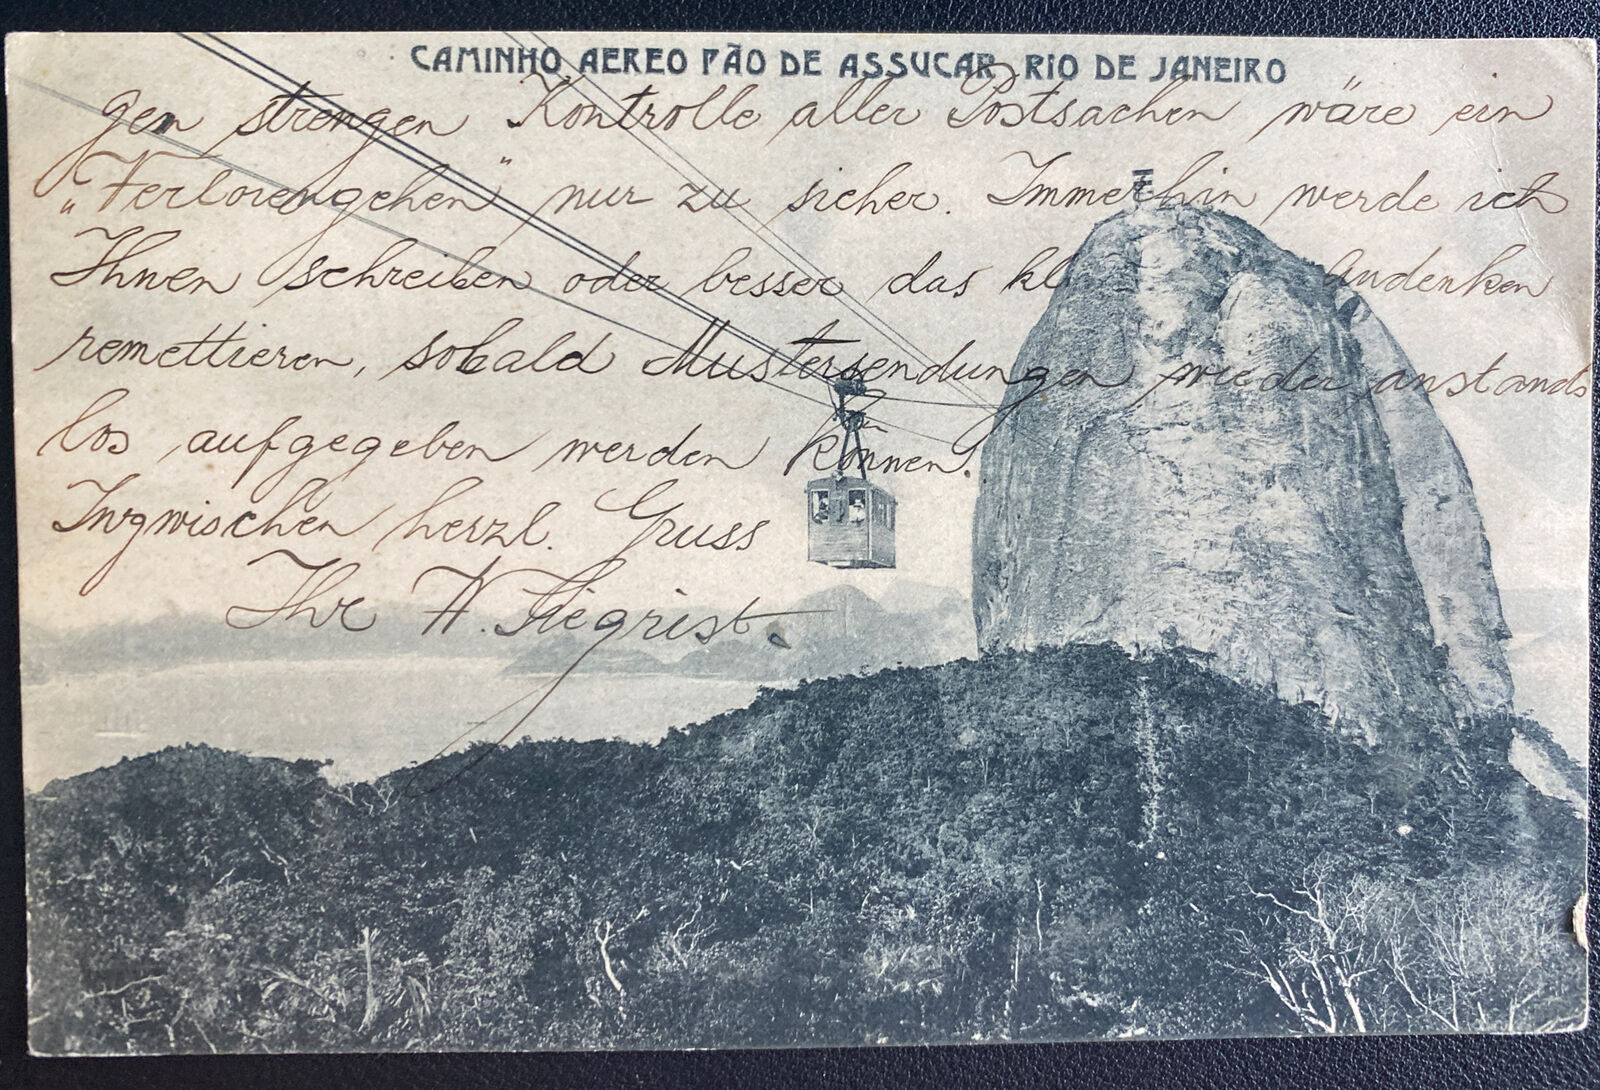 CAMINHO AEREO PÃO DE ASSUCAR RIO DE JANEIRO
gen strengen Kontrolle aller Postsachen wäre ein
„Verlorengehen" nur zu sicher. Immerhin werde ich
Ihnen schreiben oder besser das kl Andenken
remettieren, sobald Mustersendungen wieder anstands
los aufgegeben werden können.
Inzwischen herzl. Gruss
Ihr W. Siegrist.